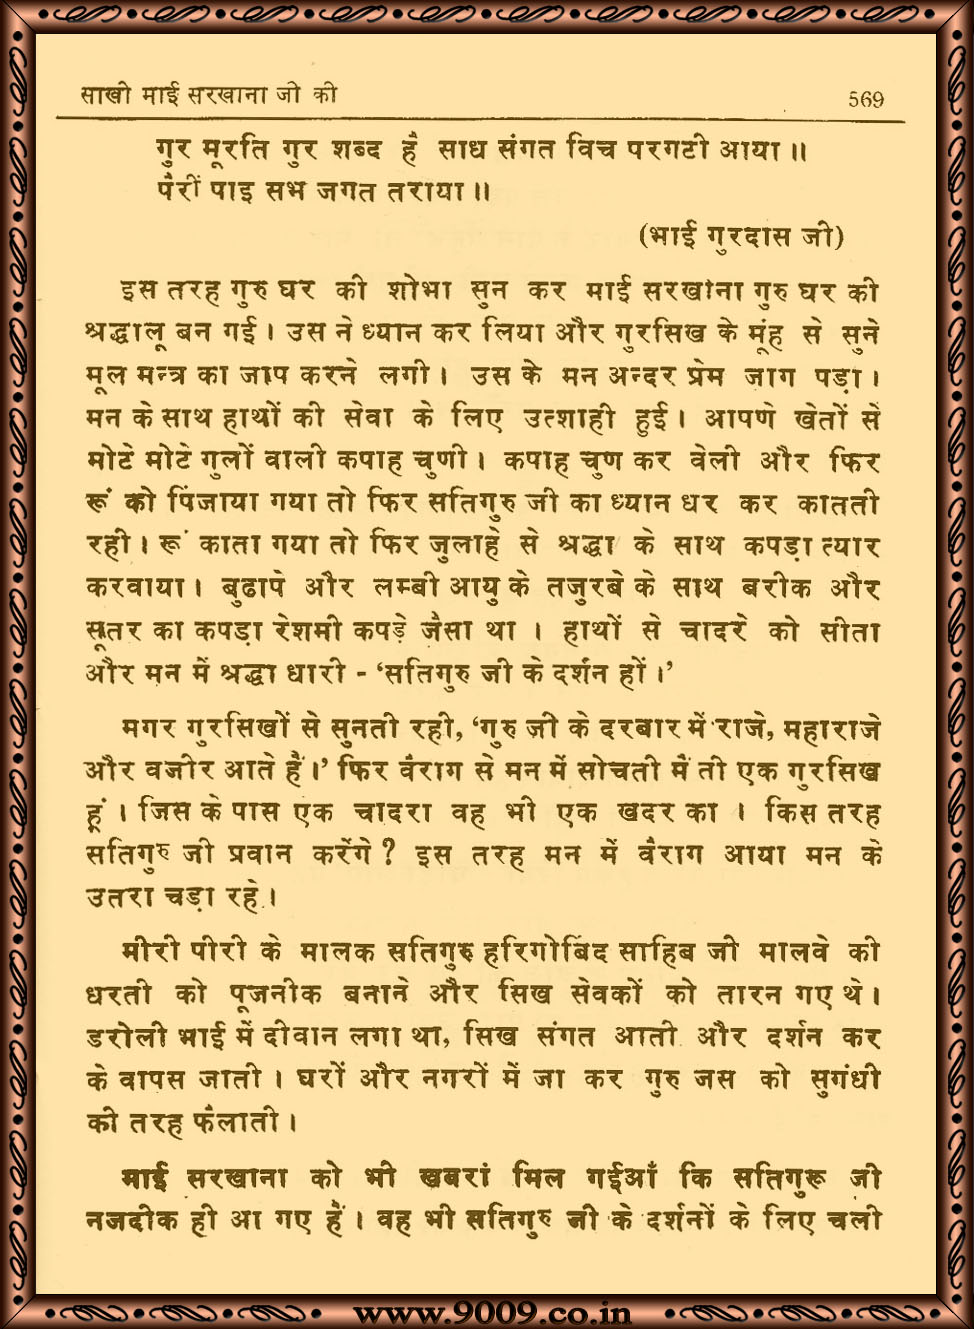 साखी माई सरखाना जी की 569
गुर मूरति गुर शब्द है साध संगत विच परगटी आया॥
पैरीं पाइ सभ जगत तराया॥
(भाई गुरदास जी)
इस तरह गुरु घर की शोभा सुन कर माई सरखाना गुरु घर की
श्रद्धालू बन गई। उस ने ध्यान कर लिया और गुरसिख के मूंह से सुने
मूल मन्त्र का जाप करने लगी। उस के मन अन्दर प्रेम जाग पड़ा।
मन के साथ हाथों की सेवा के लिए उत्शाही हुई। आपणे खेतों से
मोटे मोटे गुलों वाली कपाह चुणी। कपाह चुण कर वेली और फिर
रूं को पिंजाया गया तो फिर सतिगुरु जी का ध्यान धर कर कातती
रही। रूं काता गया तो फिर जुलाहे से श्रद्धा के साथ कपड़ा त्यार
करवाया। बुढापे और लम्बी आयु के तजुरबे के साथ बरीक और
सूतर का कपड़ा रेशमी कपड़े जैसा था । हाथों से चादरे को सीता
और मन में श्रद्धा धारी - ‘सतिगुरु जी के दर्शन हों।’
मगर गुरसिखों से सुनती रही, ‘गुरु जी के दरबार में राजे, महाराजे
और वजीर आते हैं।’ फिर वैराग से मन में सोचती मैं तो एक गुरसिख
हूं । जिस के पास एक चादरा वह भी एक खदर का । किस तरह
सतिगुरु जी प्रवान करेंगे ? इस तरह मन में वैराग आया मन के
उतरा चड़ा रहे।
मीरी पीरी के मालक सतिगुरु हरिगोबिंद साहिब जी मालवे की
धरती को पूजनीक बनाने और सिख सेवकों को तारन गए थे।
डरोली भाई में दीवान लगा था, सिख संगत आती और दर्शन कर
के वापस जाती । घरों और नगरों में जा कर गुरु जस को सुगंधी
की तरह फैलाती।
माई सरखाना को भी खबरां मिल गईआँ कि सतिगुरू जी
नजदीक ही आ गए हैं । वह भी सतिगुरु जी के दर्शनों के लिए चली
www.9009.co.in